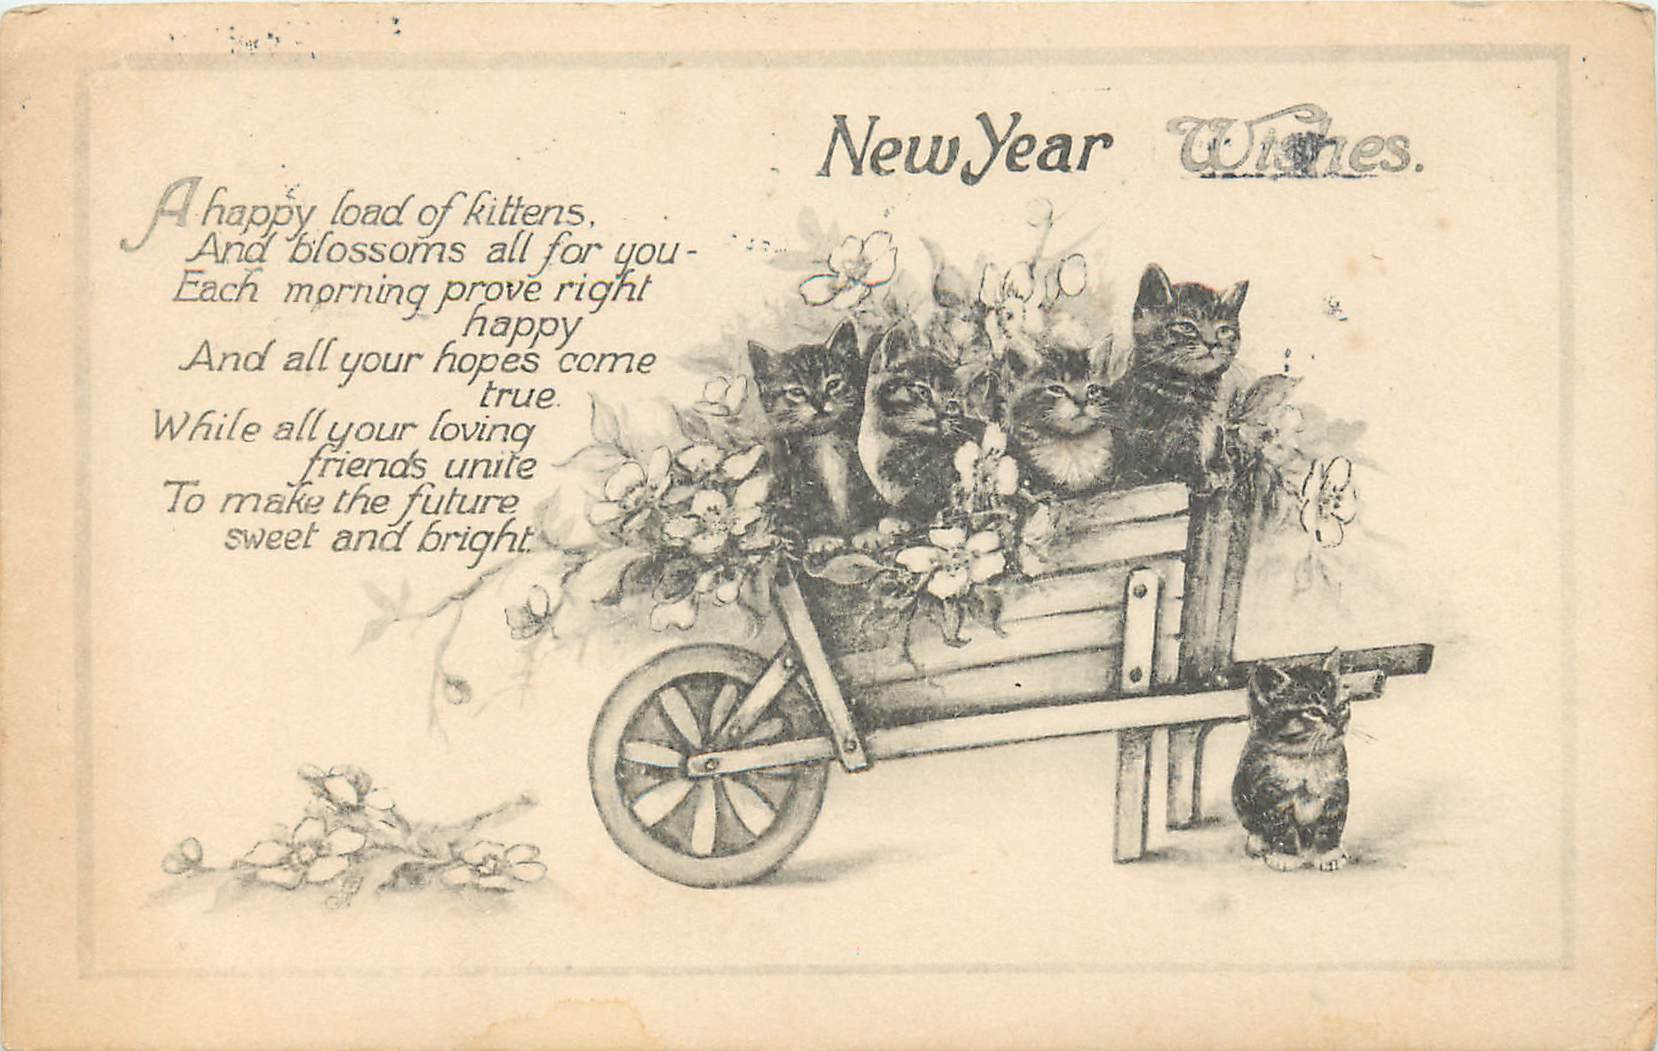 New Year Wishes.
A happy load of kittens,
And blossoms all for you-
Each morning prove right
happy
And all your hopes come
true.
While all your loving
friends unite
To make the future
sweet and bright.